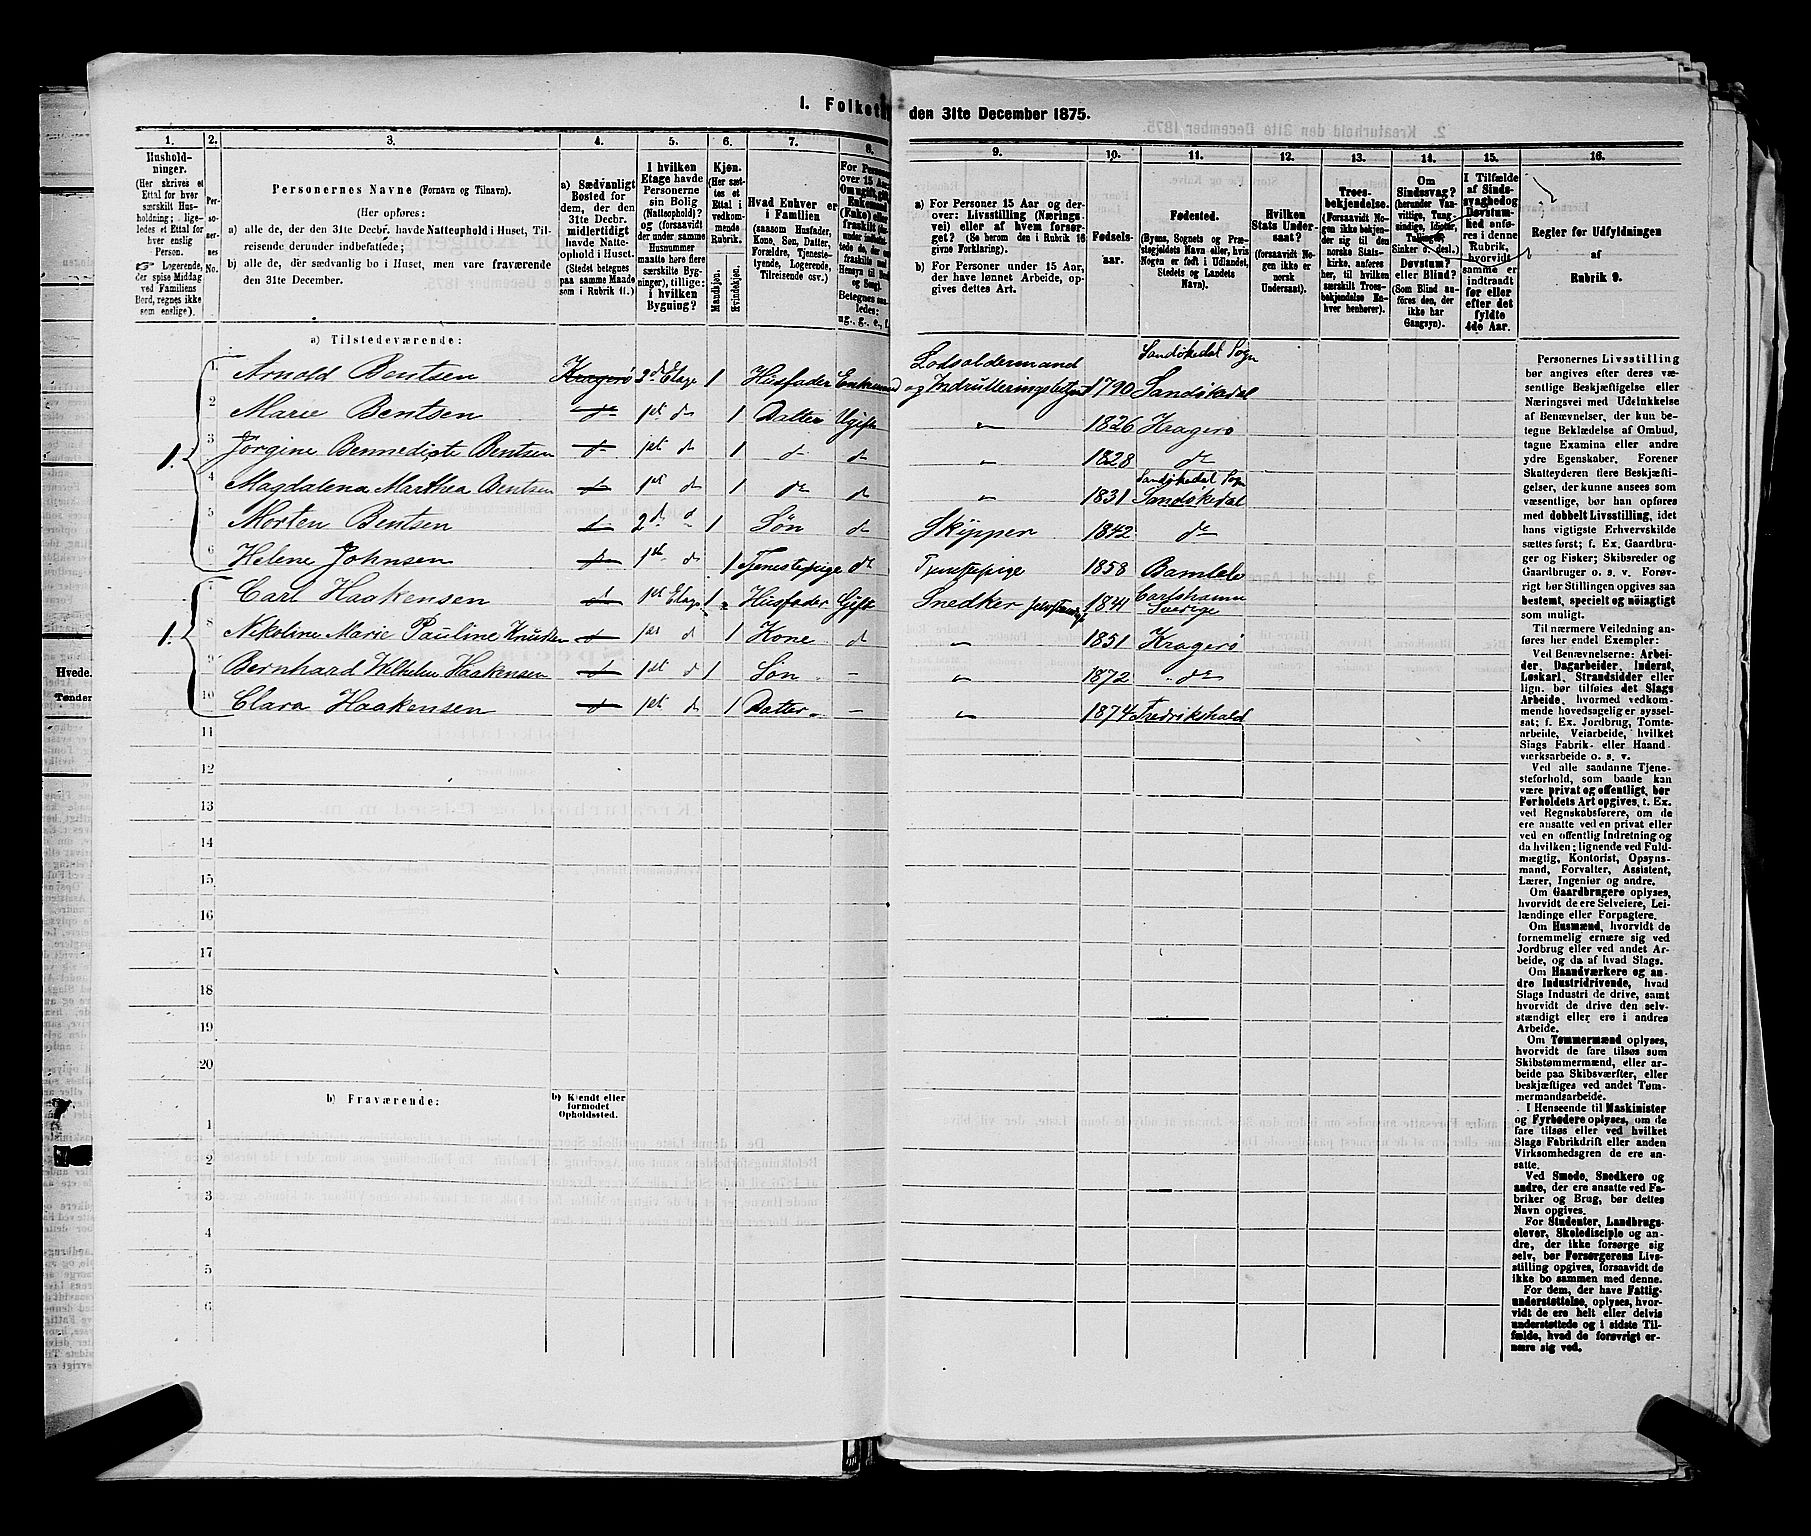 I. Folket den 31te December 1875.
1. 2. 3. 4. 5. 6. 7. 8. 9. 10. 11. 12. 13. 14. 15. 16.
Hushold-
ninger.
(Her skrives et
Ettal for hver
særskilt Hus-
holdning; lige-
ledes et Ettal for
hver enslig
Person.
Logerende,
der spise Middag
ved Familiens
Bord, regnes ikke
som enslige).
Per-
so-
ner-
nes
No.
Personernes Navne (Fornavn og Tilnavn).
(Her opføres:
a) alle de, der den 31te Decbr. havde Natteophold i Huset, Til-
reisende derunder indbefattede;
b) alle de, der sædvanlig bo i Huset, men vare fraværende
den 31te December.
a) Sædvanligt
Bosted for
dem, der den
31te Decbr.
midlertidigt
havde Natte-
ophold i Huset.
(Stedet betegnes
paa samme Maade
som i Rubrik 11.)
I hvilken
Etage havde
Personerne
sin Bolig
(Natteophold)?
og (forsaavidt
der under samme
Husnummer
maatte høre flere
særskilte Byg-
ninger), tillige:
i hvilken
Bygning?
Kjøn.
(Her sæt-
tes et
Ettal i
vedkom-
mende
Rubrik.
Mandkjøn.
Kvindekjøn.
Hvad Enhver er
i Familien
(saasom Husfader,
Kone, Søn, Datter,
Forældre, Tjeneste-
tyende, Logerende,
Tilreisende osv.)
a) For Personer 15 Aar og der-
over: Livsstilling (Nærings-
vei) eller af hvem forsør-
get? (Se herom den i Rubrik 16
givne Forklaring).
b) For Personer under 15 Aar,
der have lønnet Arbeide, op-
gives dettes Art.
Fødsels-
aar.
Fødested.
(Byens, Sognets og Præ-
stegjeldets Navn eller, hvis
Nogen er født i Udlandet,
Stedets og Landets
Navn).
Hvilken
Stats Under-
saat?
(forsaavidt No-
gen ikke er
norsk
Undersaat).
Troes-
bekjendelse.
(Forsaavidt No-
gen ikke bekjen-
der sig til den
norske Stats-
kirke, anføres
her, til hvilken
særskilt Troes-
bekjendelse En-
hver henhører).
Om
Sindssvag?
(herunder Van-
vittige, Tung-
sindige, Idioter,
Tullinger,
Sinker o. desl.)
Døvstum?
eller Blind?
(Som Blind an-
føres den, der
ikke har
Gangsyn).
I Tilfælde
af Sinds-
svaghed og
Døvstum-
hed anfø-
res i denne
Rubrik,
hvorvidt
samme er
indtraadt
før eller
efter det
fyldte
4de Aar.
Regler for Udfyldningen
af
Rubrik 9.
a) Tilstedeværende:
1 Arnold Bentsen Kragerø 2d Etage 1 Husfader Enkemand Lodsoldermand og Indrulleringsbetjent 1790 Sandøkedal Sogn Sandøkedal
2 Marie Bentsen do 1st do 1 Datter Ugift " 1826 Kragerø
1. 3 Jørgine Bennedigte Bentsen do 1st do 1 do do " 1828 do
4 Magdalena Marthea Bentsen do 1st do 1 do do " 1831 Sandøkedal Sogn Sandøkedal
5 Morten Bentsen do 2d do 1 Søn do Skipper 1842 do
6 Helene Johnsen do 1st do 1 Tjenestepige do Tjenestepige 1858 Bamble
7 Carl Haakensen do 1st Etage 1 Husfader Gift Snedker selvstændig 1841 Carlshamn Sverige
1. 8 Nikoline Marie Pauline Knudsen do 1st do 1 Kone do " 1851 Kragerø
9 Bernhard Wilhelm Haakensen do 1st do 1 Søn - " 1872 do
10 Clara Haakensen do 1st do 1 Datter - " 1874 Fredrikshald
11
12
13
14
15
16
17
18
19
20
b) Fraværende: b) Kjendt eller
formodet
Opholdssted.
1
2
3
4
5
6
Personernes Livsstilling
bør angives efter deres væ-
sentlige Beskjæftigelse eller
Næringsvei med Udelukkelse
af Benævnelser, der kun be-
tegne Beklædelse af Ombud,
tagne Examina eller andre
ydre Egenskaber. Forener
Skatteyderen flere Beskjæfti-
gelser, der kunne ansees som
væsentlige, bør han opføres
med dobbelt Livsstilling, idet
hans vigtigste Erhvervskilde
sættes først; f. Ex. Gaardbru-
ger og Fisker; Skibsreder og
Gaardbruger o. s. v. Forøv-
rigt bør Stillingen opgives saa
bestemt, specielt og nøiagtigt
som muligt.
Til nærmere Veiledning an-
føres her endel Exempler:
Ved Benævnelserne: Arbei-
der, Dagarbeider, Inderst,
Løskarl, Strandsidder eller
lign. bør tilføies det Slags
Arbeide, hvormed vedkom-
mende hovedsagelig er syssel-
sat; f. Ex. Jordbrug, Tomte-
arbeide, Veiarbeide, hvilket
Slags Fabrik- eller Haand-
værksarbeide o. s. v.
Ved alle saadanne Tjene-
steforhold, som baade kan
være privat og offentligt, bør
Forholdets Art opgives, t. Ex.
ved Regnskabsførere, om de
ere ansatte ved en privat eller
ved en offentlig Indretning og
da hvilken; lignende ved Fuld-
mægtig, Kontorist, Opsyns-
mand, Forvalter, Assistent,
Lærer, Ingeniør og andre.
Om Gaardbrugere oplyses,
hvorvidt de ere Selveiere, Lei-
lændinge eller Forpagtere.
Om Husmænd, hvorvidt de
fornemmelig ernære sig ved
Jordbrug eller ved andet Ar-
beide, og da af hvad Slags.
Om Haandværkere og an-
dre Industridrivende, hvad
Slags Industri de drive, samt
hvorvidt de drive den selv-
stændigt eller ere i andres
Arbeide.
Om Tømmermænd oplyses,
hvorvidt de fare tilsøs som
Skibstømmermænd, eller ar-
beide paa Skibsværfter, eller
beskjæftiges ved andet Tøm-
mermandsarbeide.
I Henseende til Maskinister
og Fyrbødere oplyses, om de
fare tilsøs eller ved hvilket
Slags Fabrikdrift eller anden
Virksomhedsgren de ere an-
satte.
Ved Smede, Snedkere og
andre, der ere ansatte ved Fa-
briker og Brug, bør dettes
Navn opgives.
For Studenter, Landbrugs-
elever, Skoledisciple og an-
dre, der ikke forsørge sig
selv, bør Forsørgerens Livs-
stilling opgives, forsaavidt de
ikke bo sammen med denne.
For dem, der have Fattig-
understøttelse, oplyses, hvor-
vidt de ere helt eller delvis
understøttede og i sidste Til-
fælde, hvad de forøvrigt er-
nære sig ved.
Hvede.
Tønder